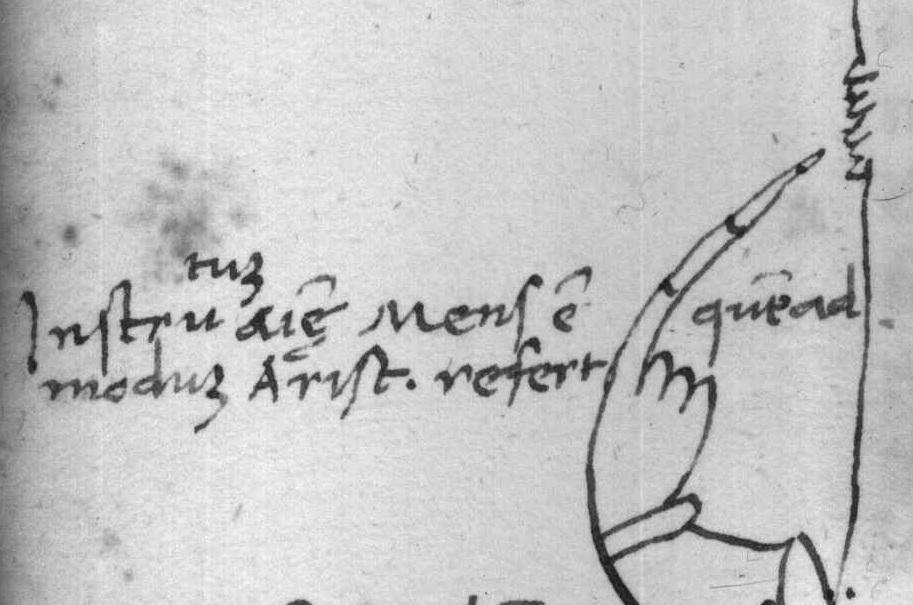 tuʒ
Instru aīę Mens ē quēad
moduʒ Arist. refert